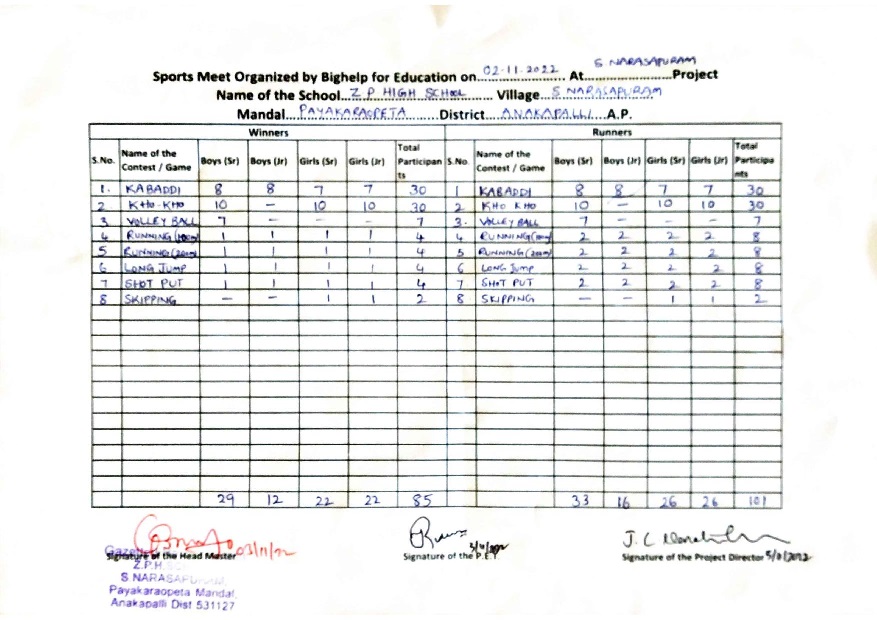 Sports Meet Organized by Bighelp for Education on 02-11-2022 At S. NARASAPURAM Project
Name of the School Z.P HIGH SCHOOL Village S. NARASAPURAM
Mandal PAYAKARAOPETA District ANAKAPALLI A.P.
Winners Runners
S.No. Name of the Contest / Game Boys (Sr) Boys (Jr) Girls (Sr) Girls (Jr) Total Participants S.No. Name of the Contest / Game Boys (Sr) Boys (Jr) Girls (Sr) Girls (Jr) Total Participants
1. KABADDI 8 8 7 7 30 1 KABADDI 8 8 7 7 30
2 KHO-KHO 10 – 10 10 30 2 KHO KHO 10 – 10 10 30
3 VOLLEY BALL 7 – – – 7 3. VOLLEY BALL 7 – – – 7
4 RUNNING (100m) 1 1 1 1 4 4 RUNNING (100m) 2 2 2 2 8
5 RUNNING (200m) 1 1 1 1 4 5 RUNNING (200m) 2 2 2 2 8
6 LONG JUMP 1 1 1 1 4 6 LONG JUMP 2 2 2 2 8
7 SHOT PUT 1 1 1 1 4 7 SHOT PUT 2 2 2 2 8
8 SKIPPING – – 1 1 2 8 SKIPPING – – 1 1 2
29 12 22 22 85 33 16 26 26 101
Signature of the Head Master 03/11/22 Signature of the P.E.T. Signature of the Project Director
Z.P.H.
S NARASAPURAM,
Payakaraopeta Mandal,
Anakapalli Dist 531127